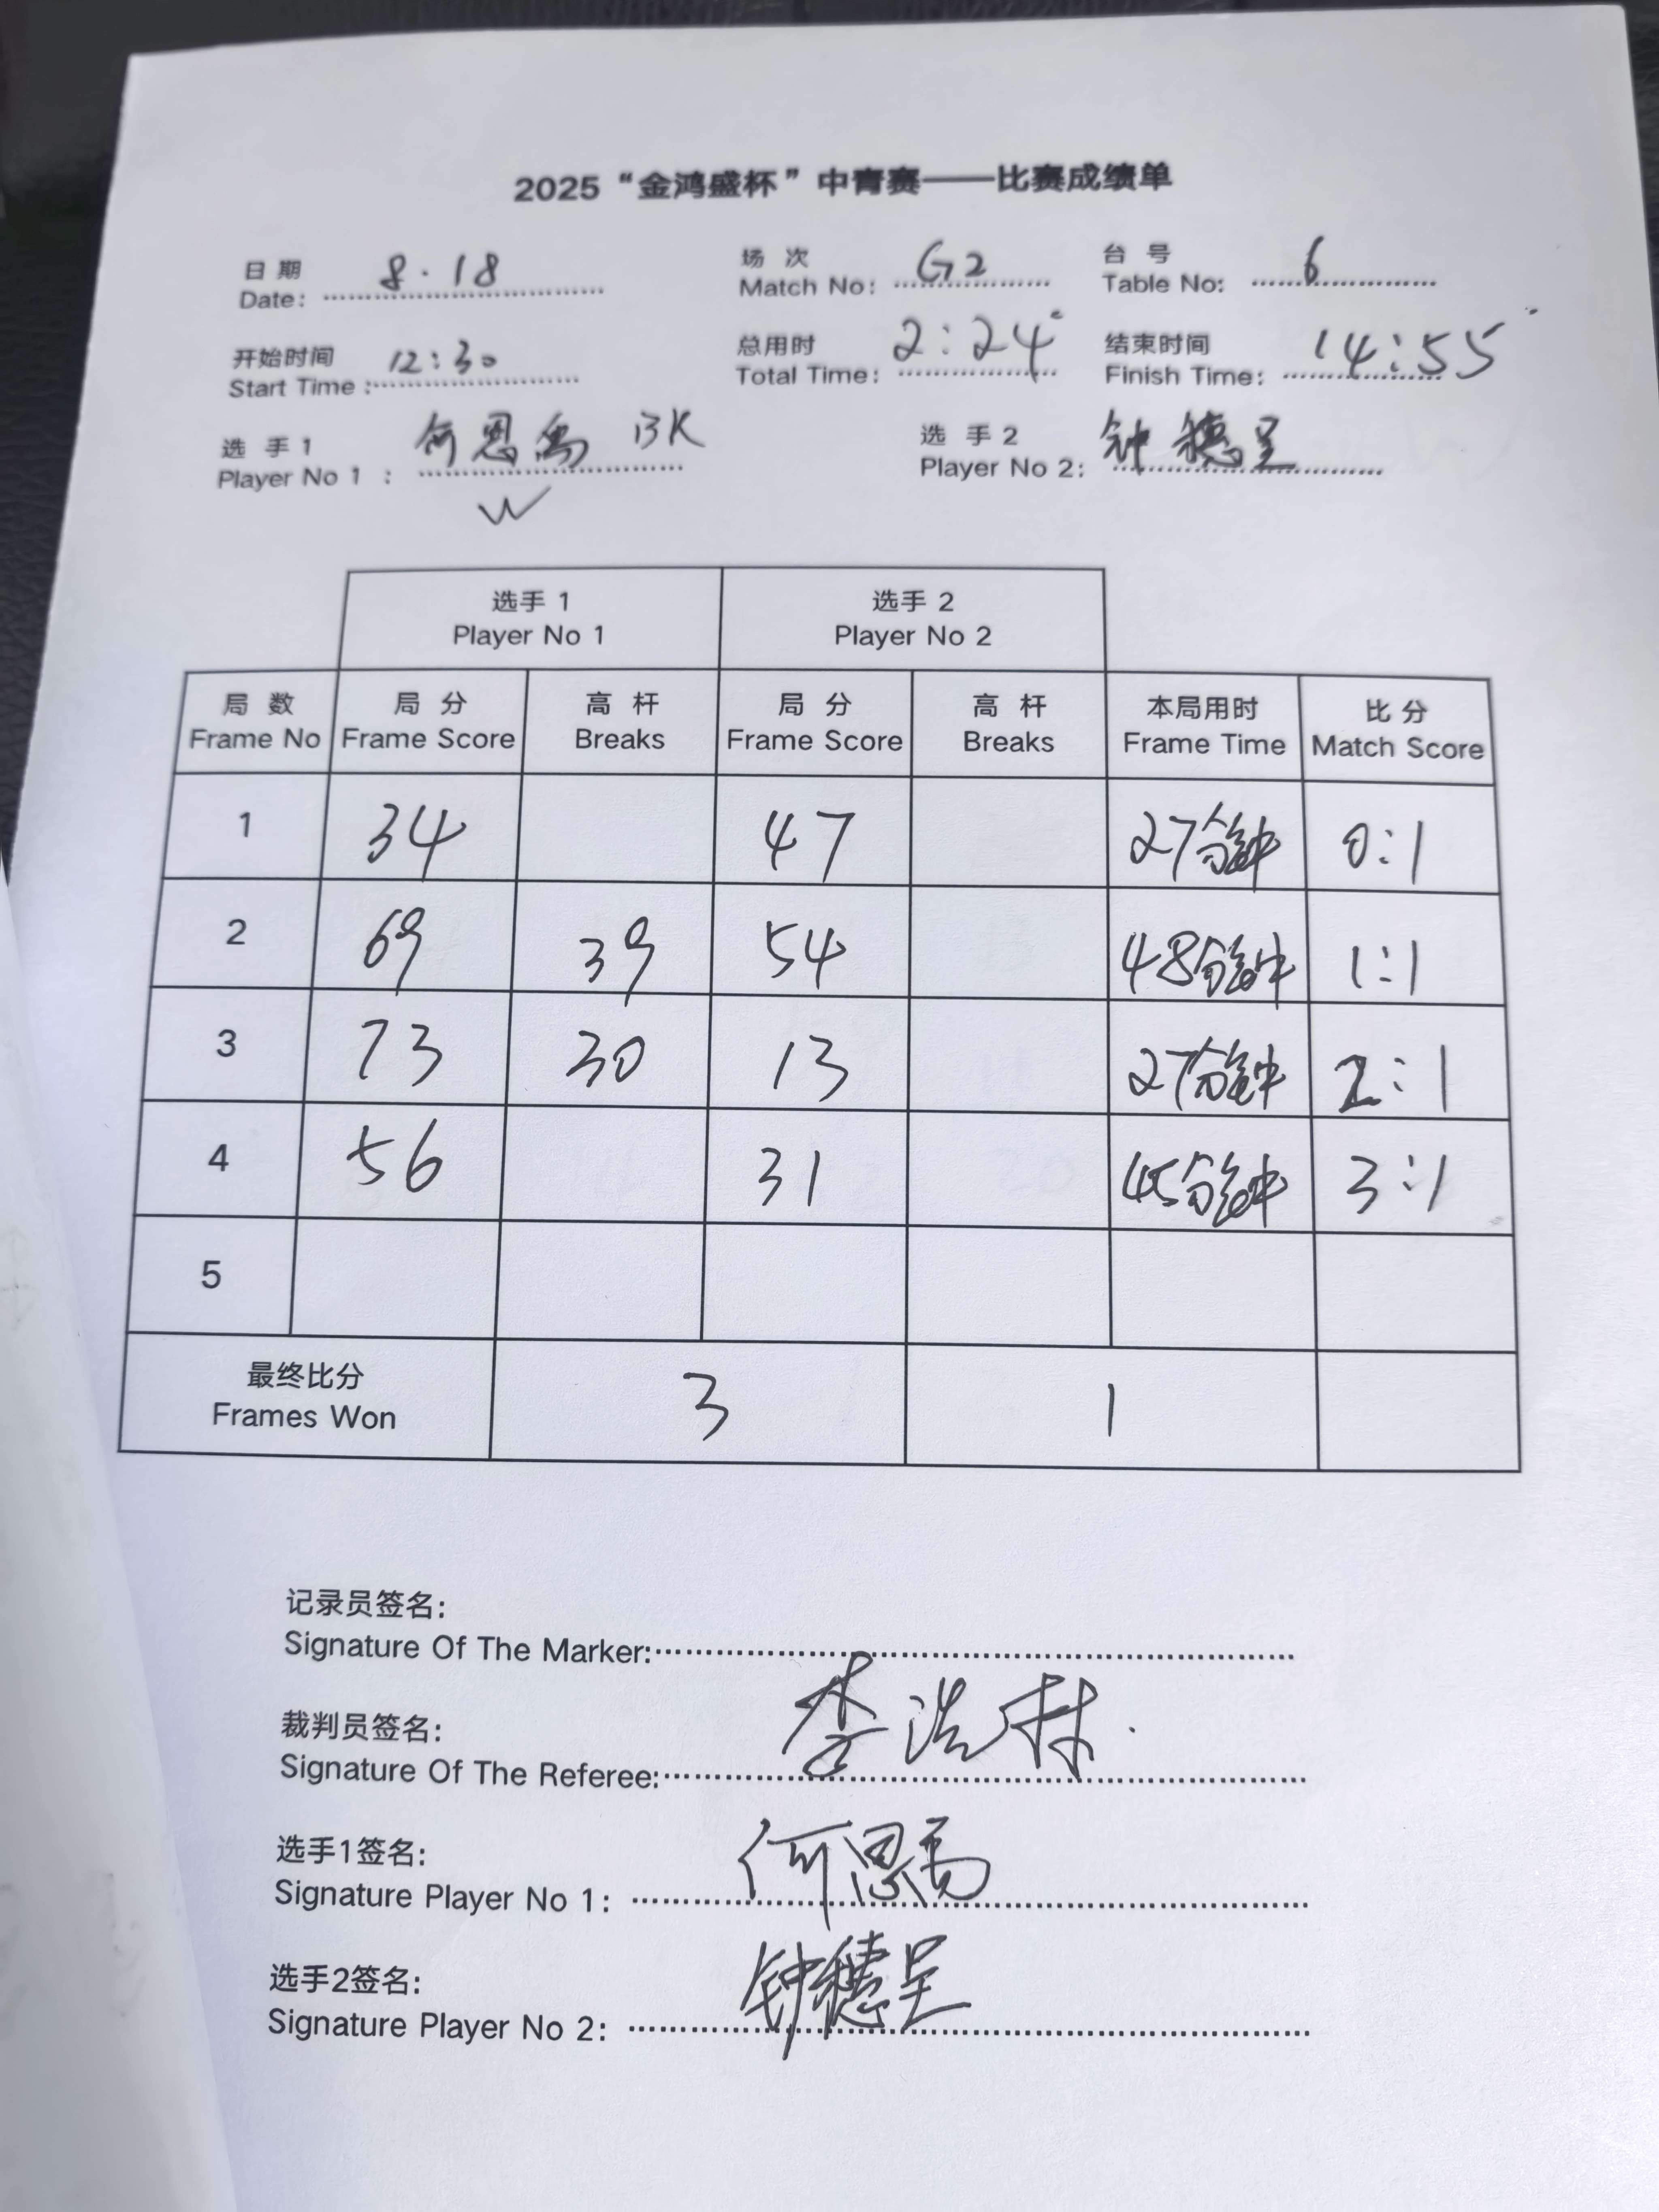 2025“金鸿盛杯”中青赛——比赛成绩单
日期 8.18 场次 G2 台号 6
Date: Match No: Table No:
开始时间 12:30 总用时 2:24 结束时间 14:55
Start Time: Total Time: Finish Time:
选手1 何恩禹 BK 选手2 钟穗呈
Player No 1: Player No 2:
W
选手1 选手2
Player No 1 Player No 2
局数 局分 高杆 局分 高杆 本局用时 比分
Frame No Frame Score Breaks Frame Score Breaks Frame Time Match Score
1 34 47 27分钟 0:1
2 69 39 54 48分钟 1:1
3 73 30 13 27分钟 2:1
4 56 31 45分钟 3:1
5
最终比分 3 1
Frames Won
记录员签名:
Signature Of The Marker:
裁判员签名: 李浩林
Signature Of The Referee:
选手1签名: 何恩禹
Signature Player No 1:
选手2签名: 钟穗呈
Signature Player No 2: